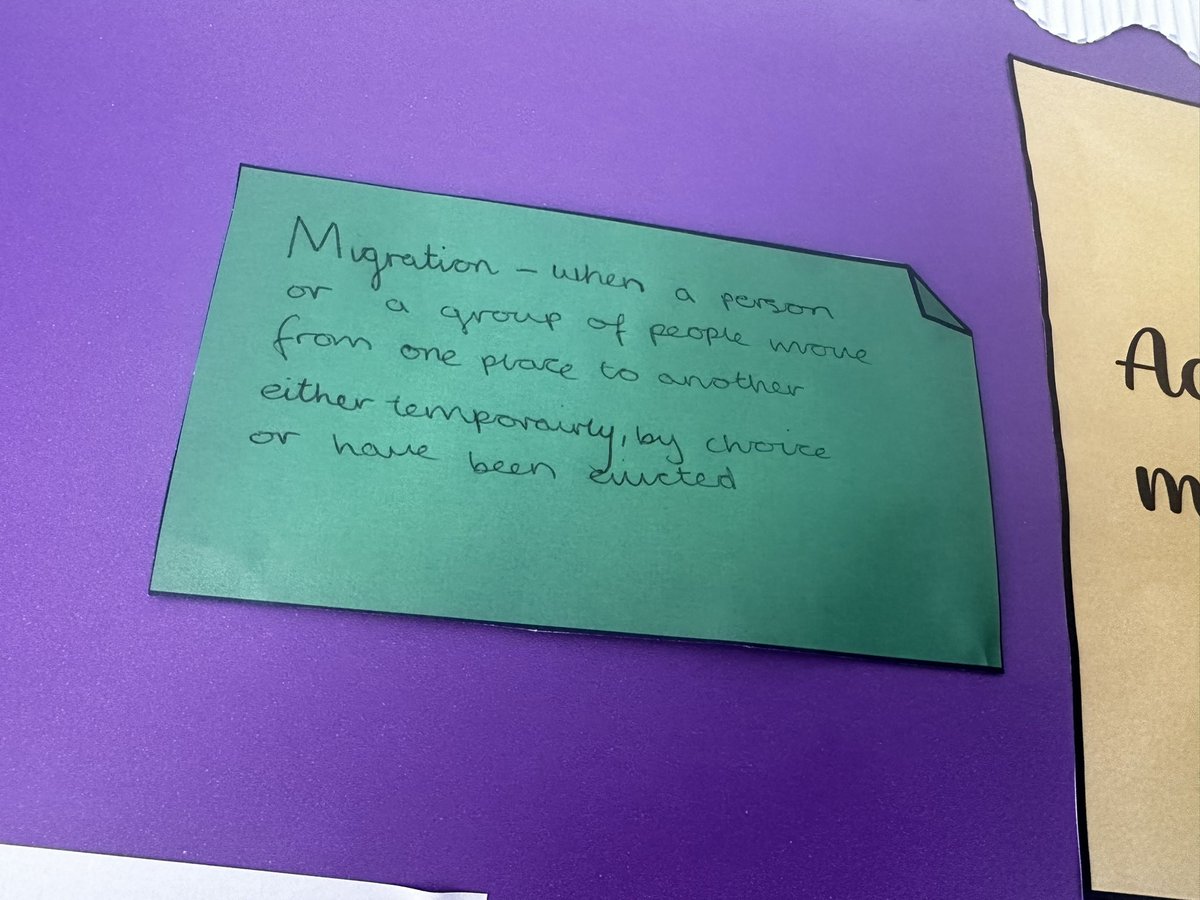 Migration - when a person
or a group of people move
from one place to another
either temporairly, by choice
or have been evicted
Ac
m